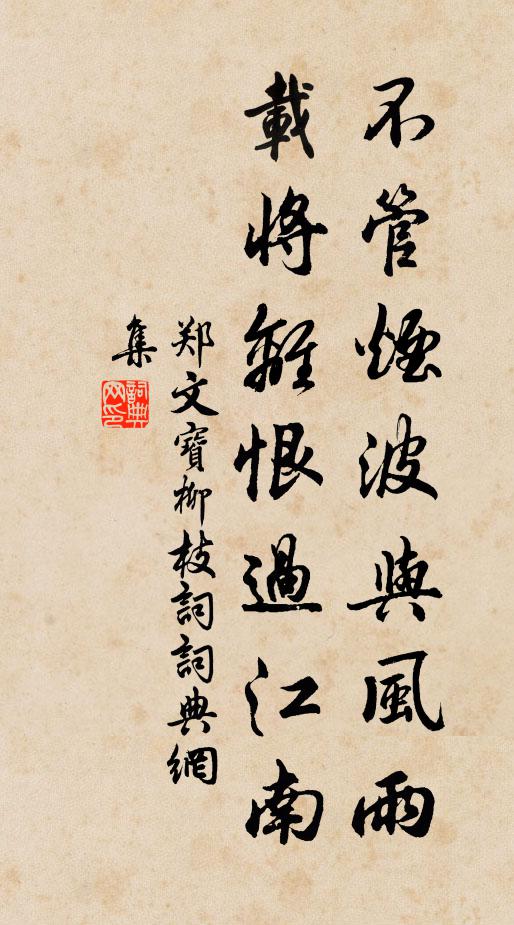 不管煙波與風雨
載將離恨過江南
郑文寶柳枝詞詞典網
集
詞典
网印